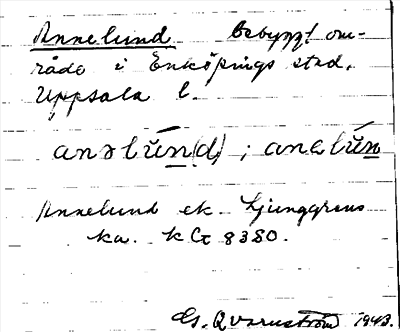 Annelund Bebyggt om-
råde i Enköpings stad,
Uppsala l.
anəlún(d) ; anelún
Annelund ek. Ljunggrens
ka. k G 8380.
G. Qvarnström 1943.